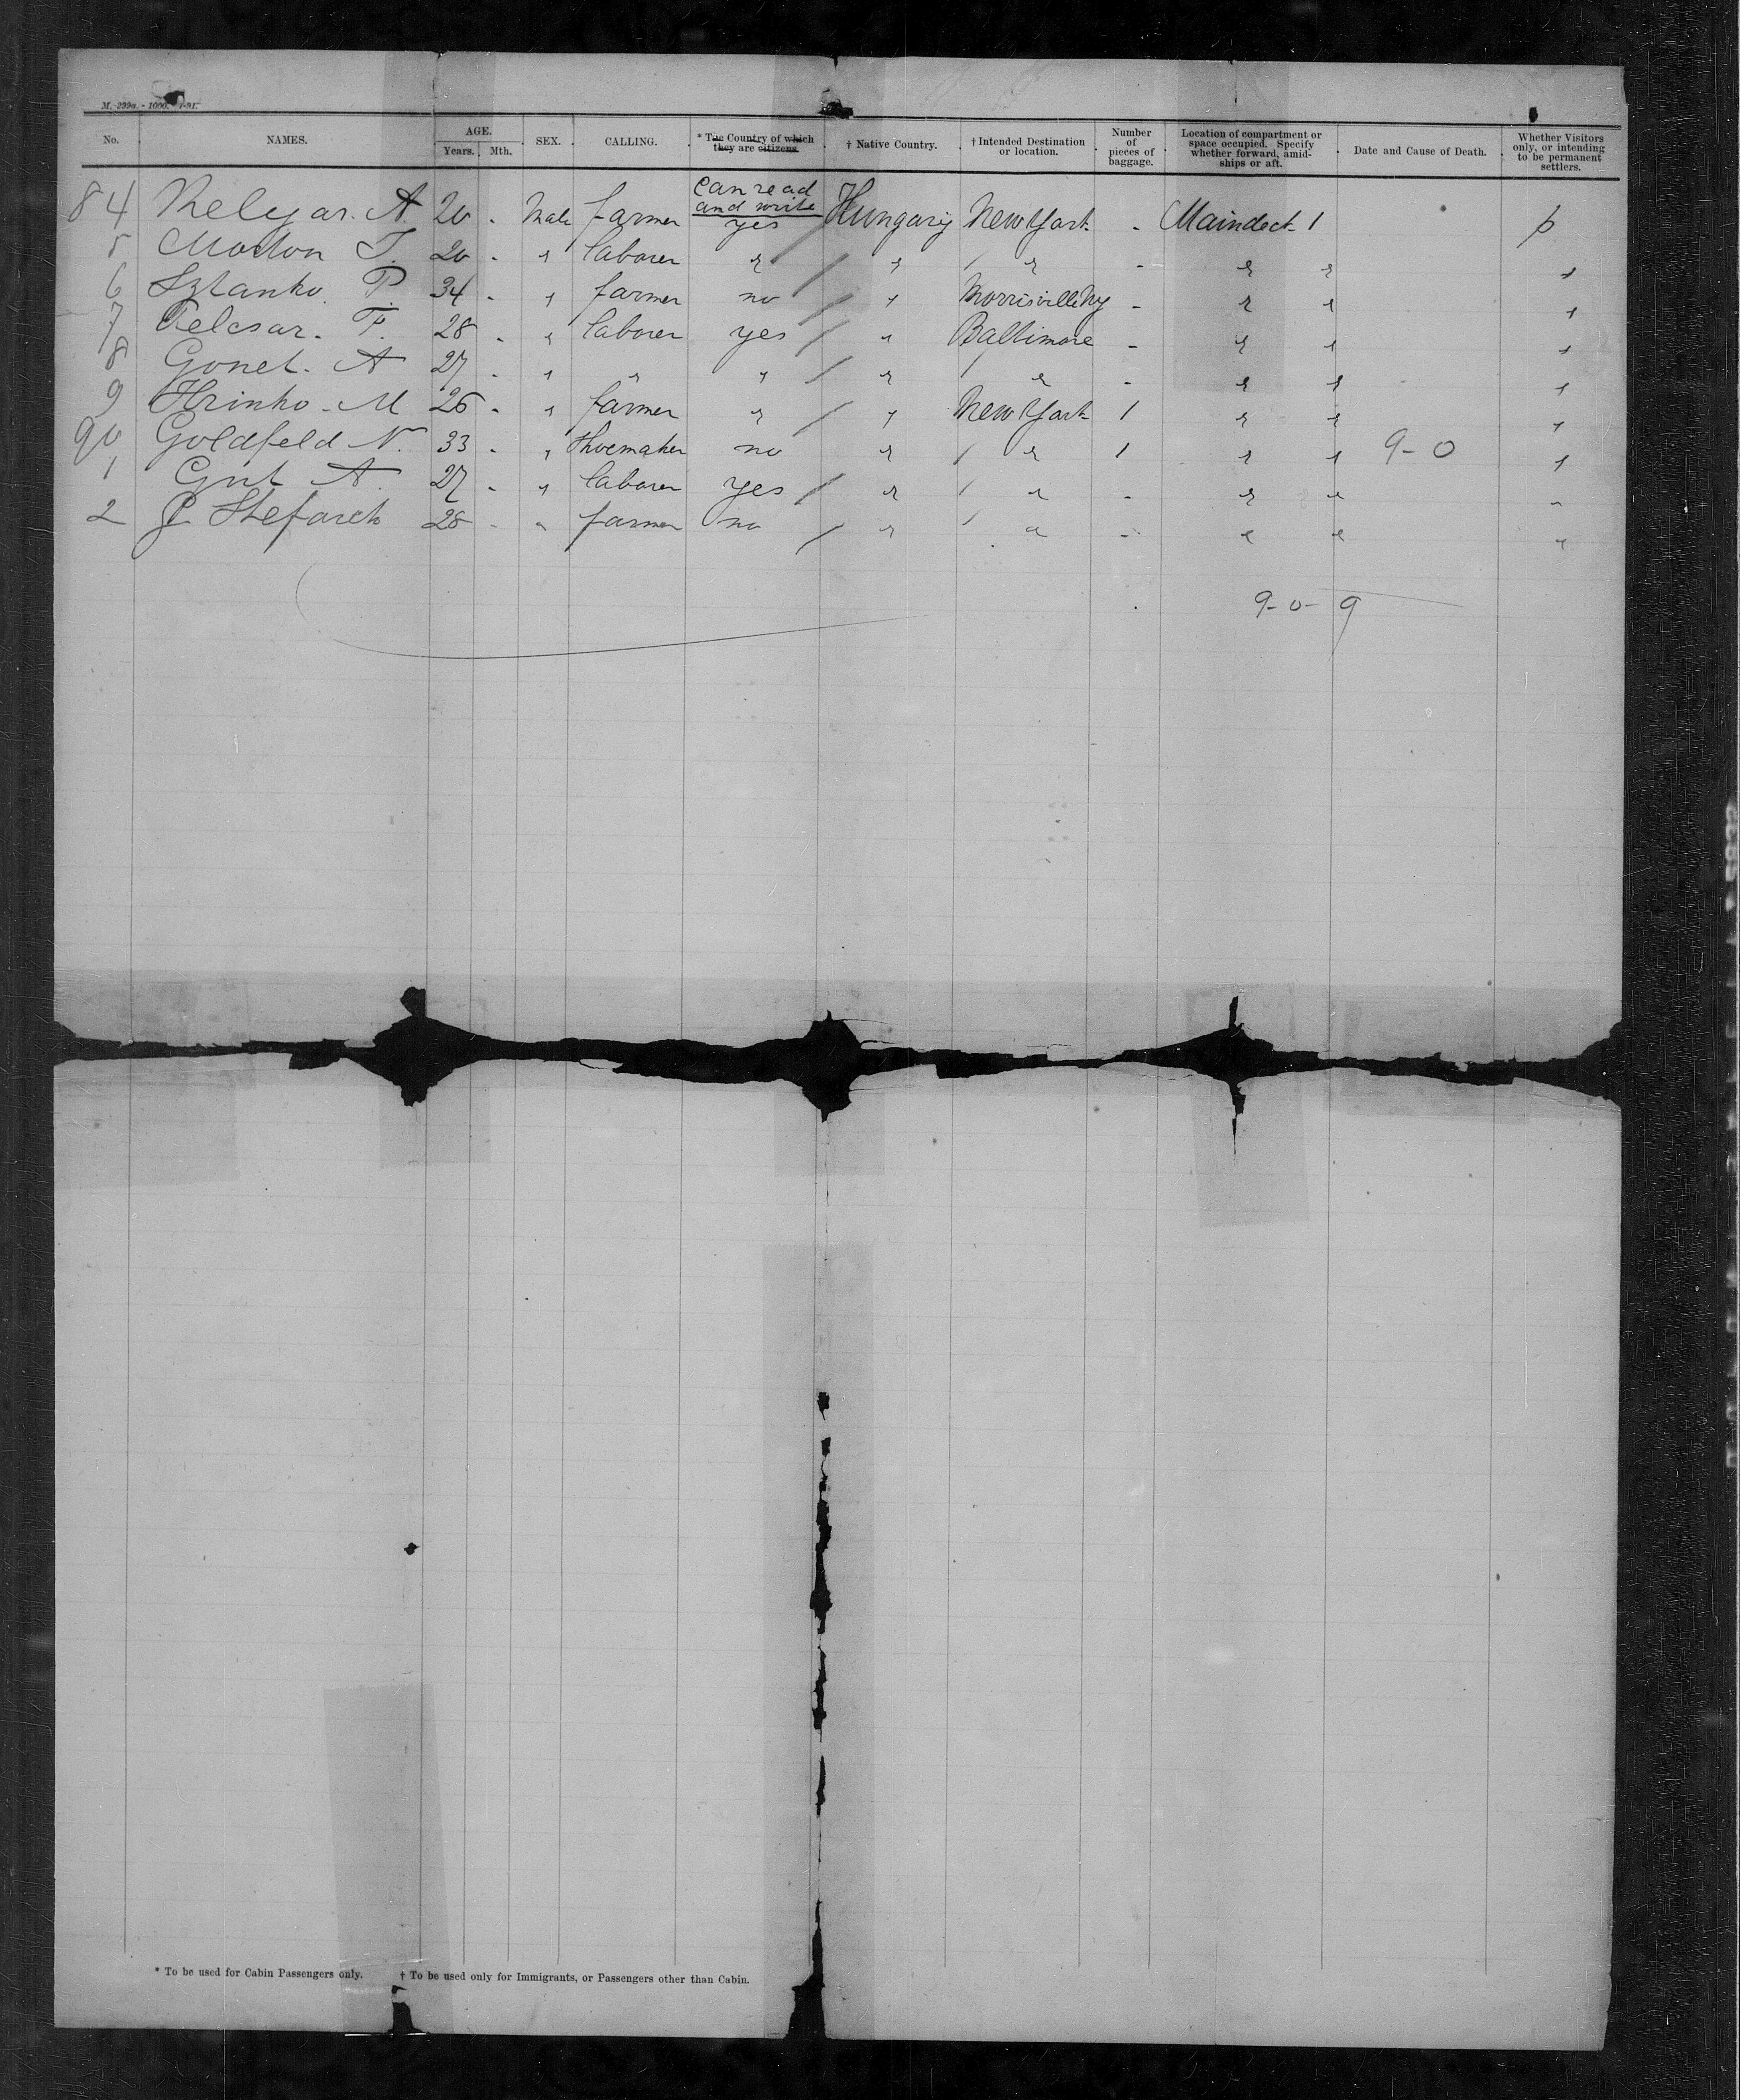 M. 299a. - 1000. 7-91.
No. NAMES. AGE. Years. Mth. SEX. CALLING. * The Country of which they are citizens. † Native Country. † Intended Destination or location. Number of pieces of baggage. Location of compartment or space occupied. Specify whether forward, amidships or aft. Date and Cause of Death. Whether Visitors only, or intending to be permanent settlers.
can read
and write
84 A. 20 - Male farmer yes / Hungary New York - Maindeck 1 p
5 20 - " laborer " / " / " - " " "
6 Sztanko P. 34 - " farmer no / " Morrisville Ny - " " "
7 28 - " laborer yes / " Baltimore - " " "
8 Gonet. A 27 - " " " / " / " - " " "
9 Hrinko. M 26 - " farmer " / " New York 1 " " "
90 Goldfeld N. 33 - " Shoemaker no " / " 1 " " 9-0 "
1 A. 27 - " laborer yes / " / " - " " "
2 28 - " farmer no / " / " - " " "
9-0-9
* To be used for Cabin Passengers only. † To be used only for Immigrants, or Passengers other than Cabin.